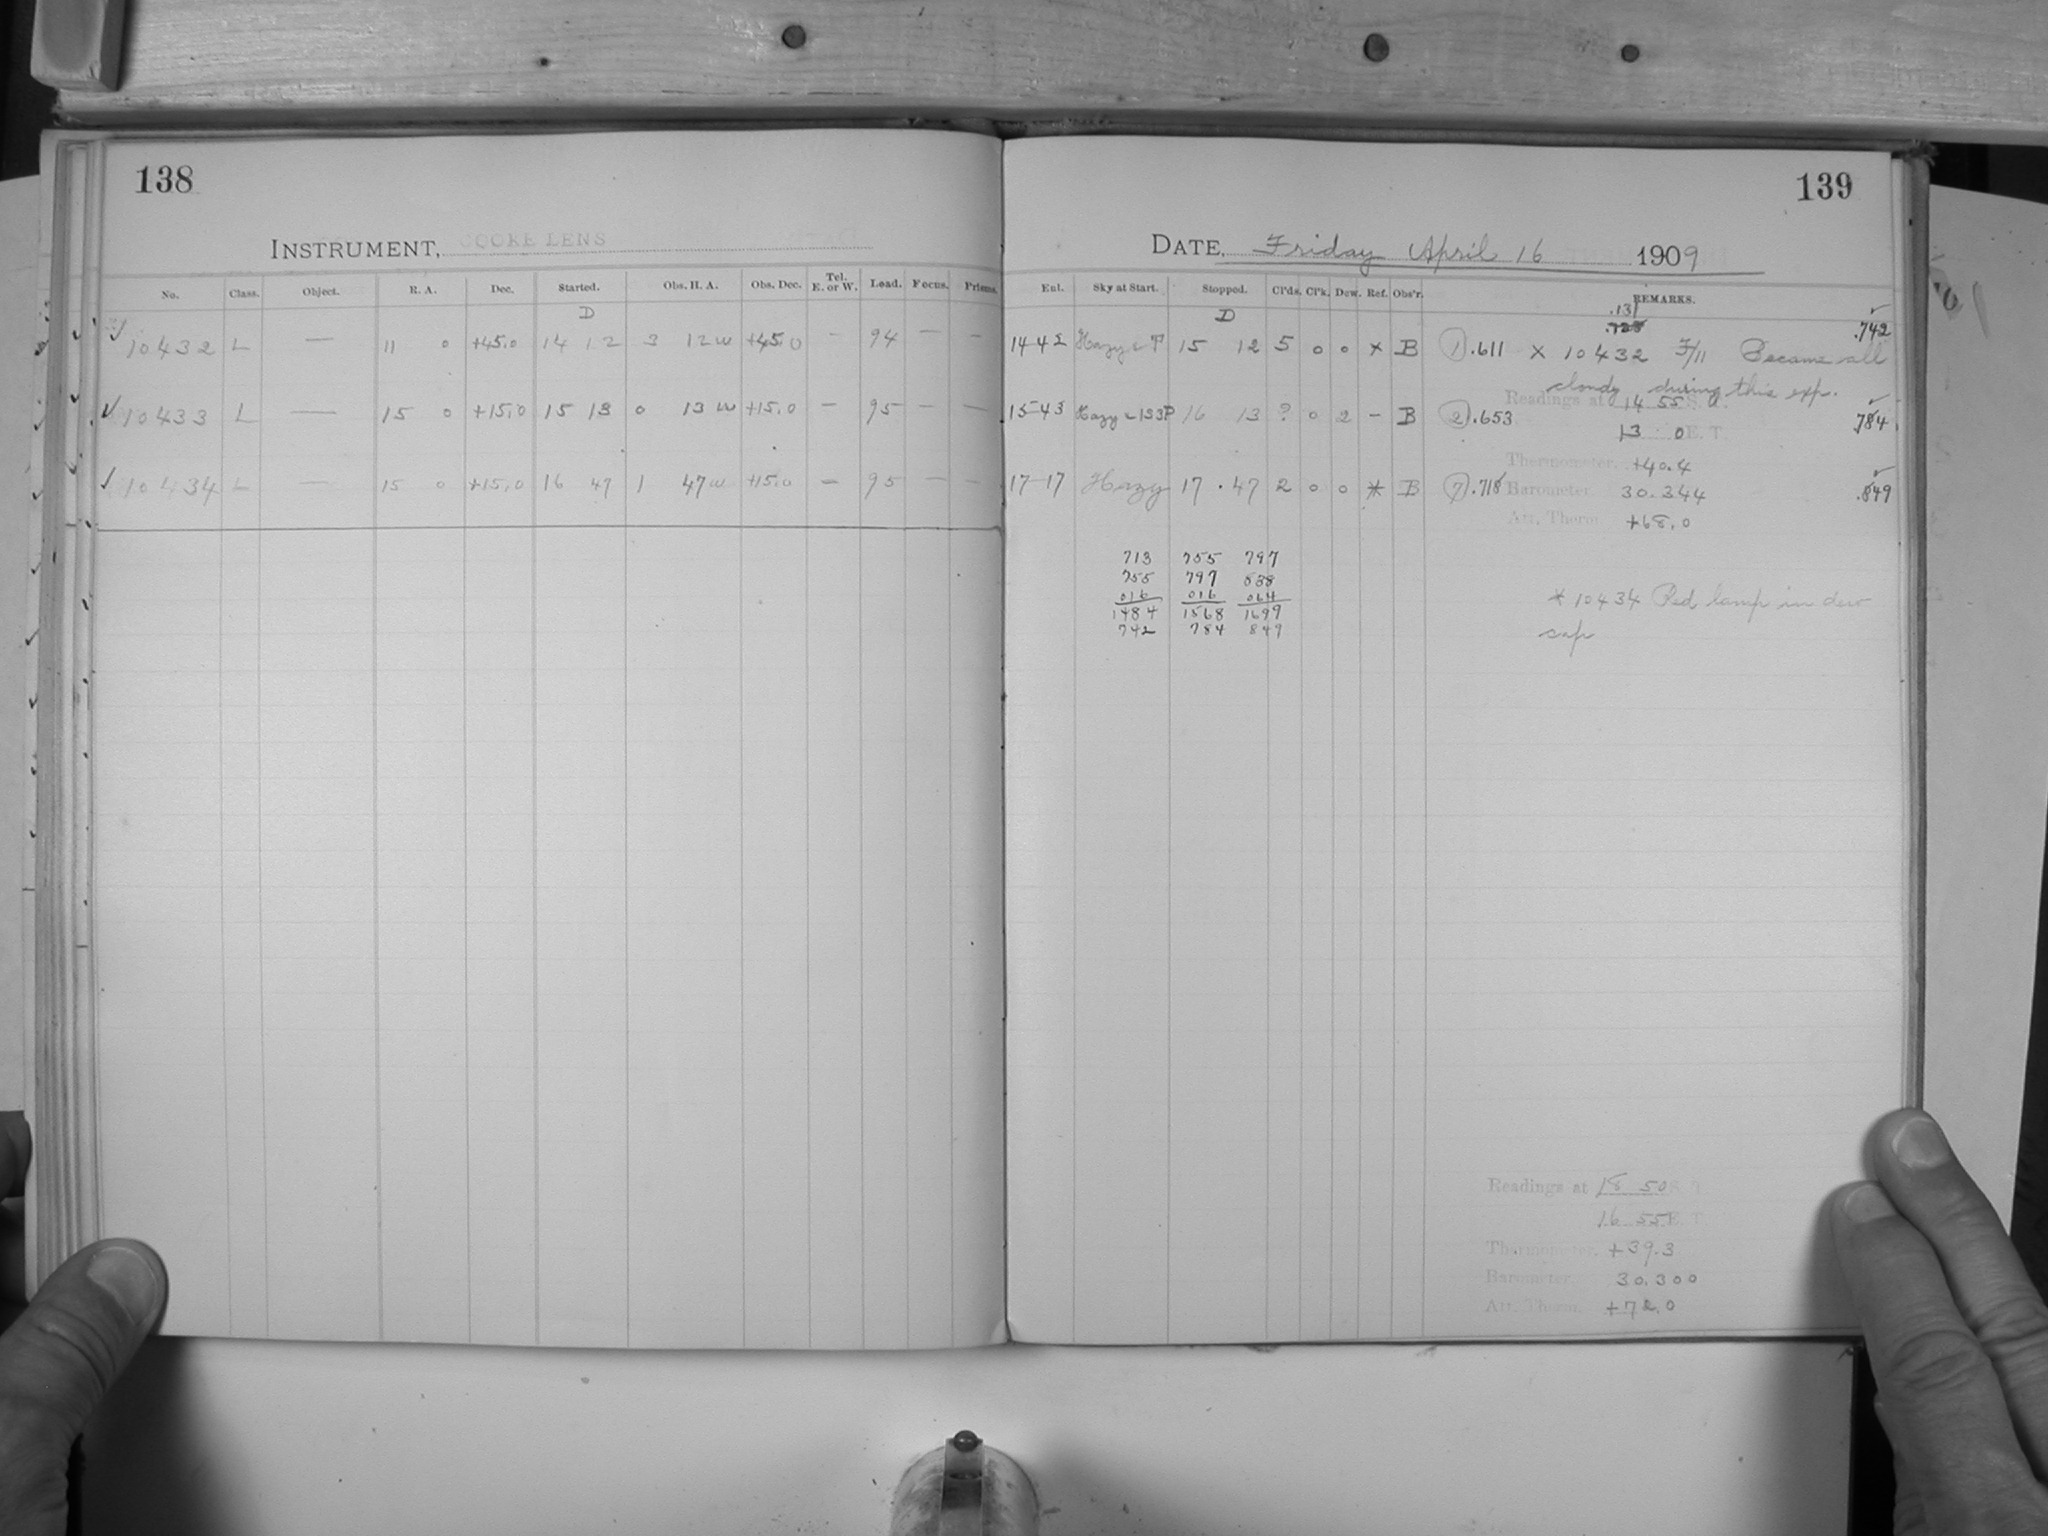 138
139
INSTRUMENT, COOKE LENS
DATE, Friday April 16 1909
No. Class. Object. R. A. Dec. Started. Obs. H. A. Obs. Dec. Tel. E. or W. Lead. Focus. Prisms. Ent. Sky at Start. Stopped. Cl'ds. Cl'k. Dew. Ref. Obs'r. REMARKS.
D D .131
.742
10432 L — 11 0 +45.0 14 12 3 12 W +45.0 — 94 — — 14 42 15 12 5 0 0 × B 1 .611 × 10432 F/11 Became all
cloudy during this exp.
Readings at 14 55 S. T.
10433 L — 15 0 +15.0 15 13 0 13 W +15.0 — 95 — — 15 43 16 13 ? 0 2 – B 2 .653 .784
13 0 E. T.
Thermometer. +40.4
10434 L — 15 0 +15.0 16 47 1 47 W +15.0 — 95 — — 17 17 Hazy 17 47 2 0 0 * B 7 .718 .849
Barometer. 30.344
Att. Therm. +68.0
713 755 797
755 797 838
016 016 064
1484 1568 1699
742 784 849
* 10434 Red lamp in dew
cap
Readings at 18 50 S. T.
16 55 E. T.
Thermometer. +39.3
Barometer. 30.300
Att. Therm. +72.0